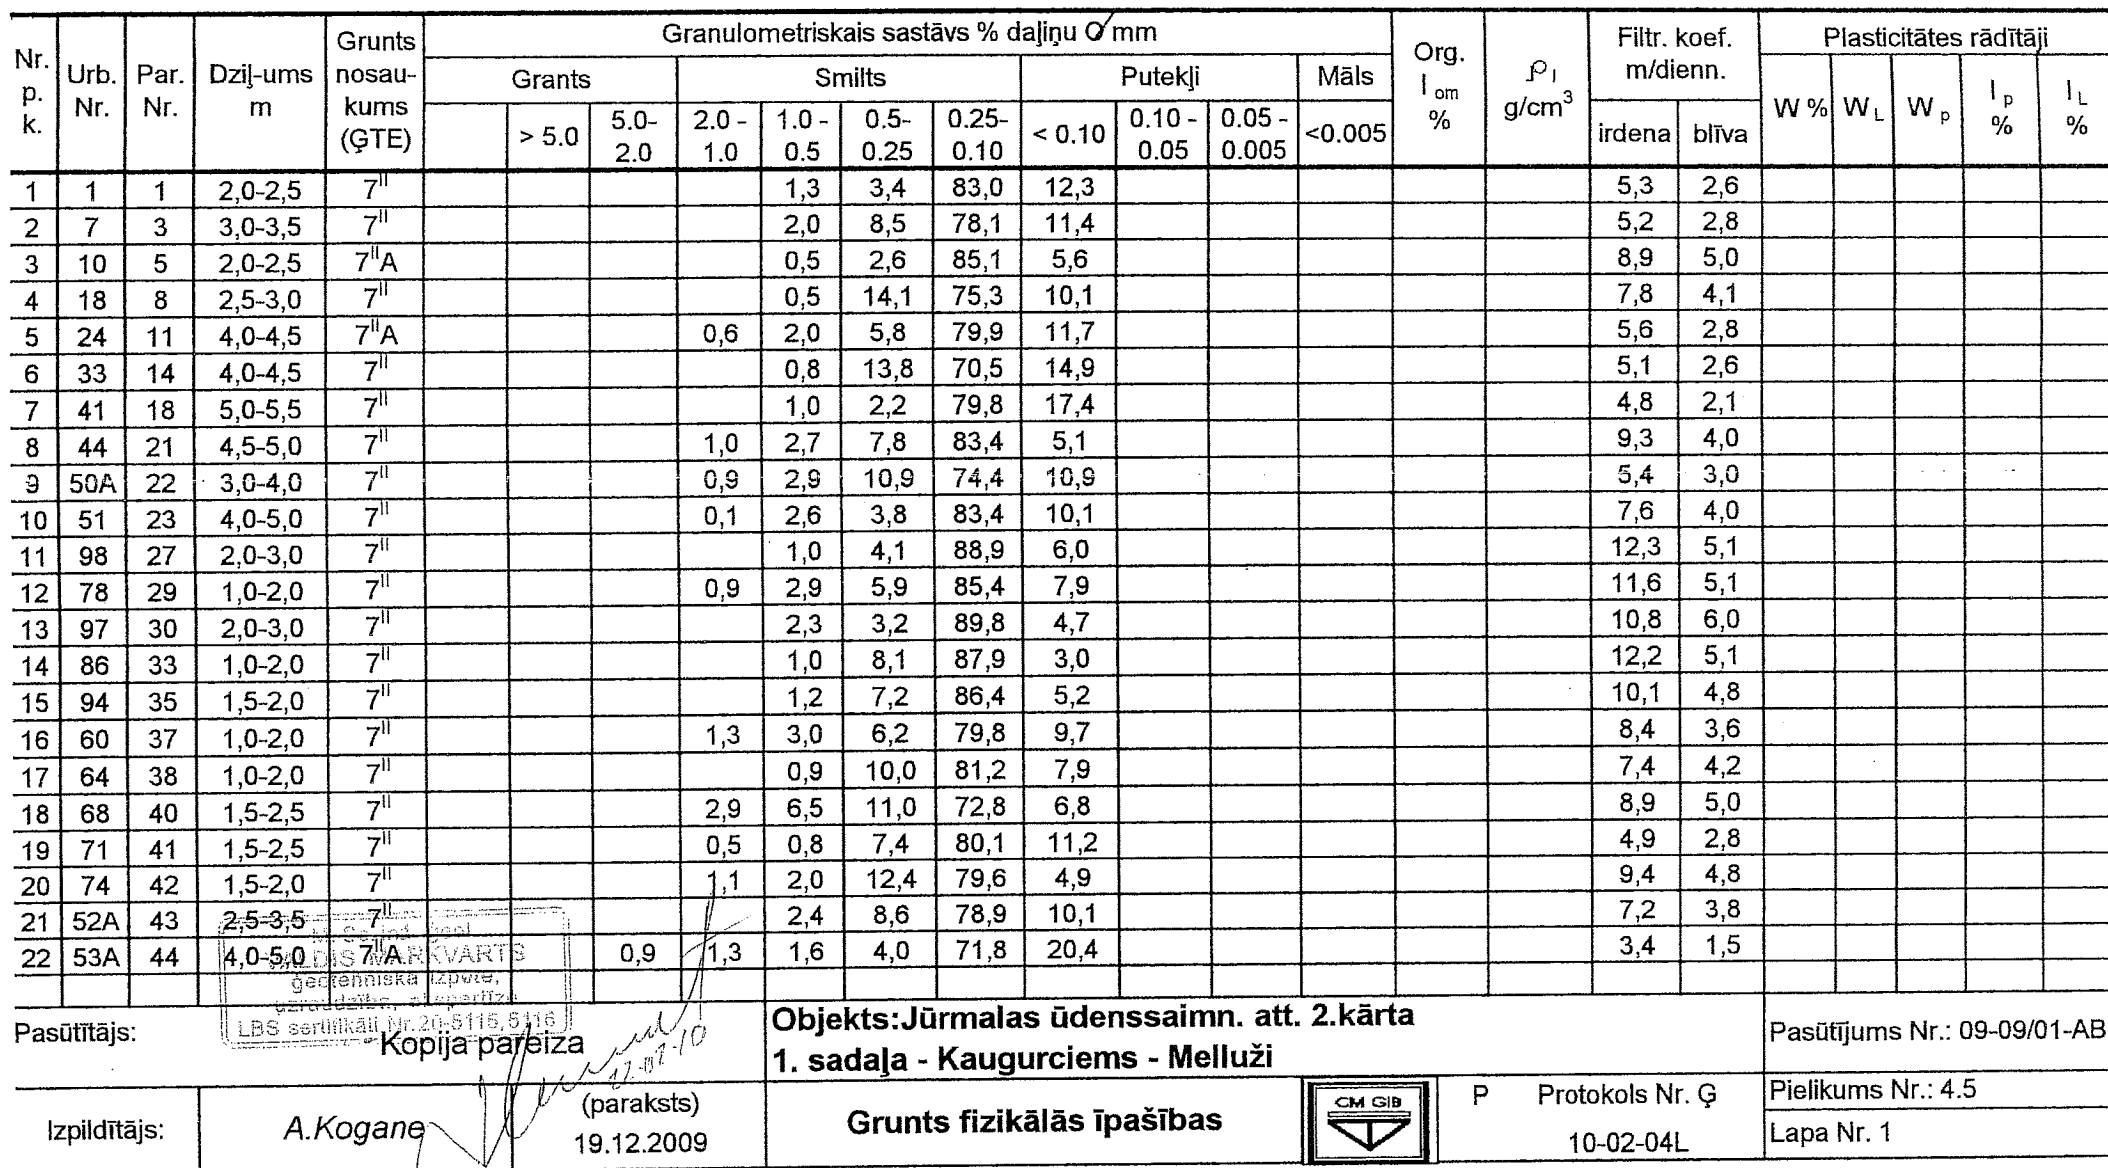 Nr. p. k. Urb. Nr. Par. Nr. Dziļ-ums m Grunts nosau-kums (ĢTE) Granulometriskais sastāvs % daļiņu Ø mm Org. I om % ρ I g/cm³ Filtr. koef. m/dienn. Plasticitātes rādītāji
Grants Smilts Putekļi Māls
> 5.0 5.0-2.0 2.0 - 1.0 1.0 - 0.5 0.5-0.25 0.25-0.10 < 0.10 0.10 - 0.05 0.05 - 0.005 <0.005 irdena blīva W % W L W p I p % I L %
1 1 1 2,0-2,5 7ᴵᴵ 1,3 3,4 83,0 12,3 5,3 2,6
2 7 3 3,0-3,5 7ᴵᴵ 2,0 8,5 78,1 11,4 5,2 2,8
3 10 5 2,0-2,5 7ᴵᴵA 0,5 2,6 85,1 5,6 8,9 5,0
4 18 8 2,5-3,0 7ᴵᴵ 0,5 14,1 75,3 10,1 7,8 4,1
5 24 11 4,0-4,5 7ᴵᴵA 0,6 2,0 5,8 79,9 11,7 5,6 2,8
6 33 14 4,0-4,5 7ᴵᴵ 0,8 13,8 70,5 14,9 5,1 2,6
7 41 18 5,0-5,5 7ᴵᴵ 1,0 2,2 79,8 17,4 4,8 2,1
8 44 21 4,5-5,0 7ᴵᴵ 1,0 2,7 7,8 83,4 5,1 9,3 4,0
9 50A 22 3,0-4,0 7ᴵᴵ 0,9 2,9 10,9 74,4 10,9 5,4 3,0
10 51 23 4,0-5,0 7ᴵᴵ 0,1 2,6 3,8 83,4 10,1 7,6 4,0
11 98 27 2,0-3,0 7ᴵᴵ 1,0 4,1 88,9 6,0 12,3 5,1
12 78 29 1,0-2,0 7ᴵᴵ 0,9 2,9 5,9 85,4 7,9 11,6 5,1
13 97 30 2,0-3,0 7ᴵᴵ 2,3 3,2 89,8 4,7 10,8 6,0
14 86 33 1,0-2,0 7ᴵᴵ 1,0 8,1 87,9 3,0 12,2 5,1
15 94 35 1,5-2,0 7ᴵᴵ 1,2 7,2 86,4 5,2 10,1 4,8
16 60 37 1,0-2,0 7ᴵᴵ 1,3 3,0 6,2 79,8 9,7 8,4 3,6
17 64 38 1,0-2,0 7ᴵᴵ 0,9 10,0 81,2 7,9 7,4 4,2
18 68 40 1,5-2,5 7ᴵᴵ 2,9 6,5 11,0 72,8 6,8 8,9 5,0
19 71 41 1,5-2,5 7ᴵᴵ 0,5 0,8 7,4 80,1 11,2 4,9 2,8
20 74 42 1,5-2,0 7ᴵᴵ 1,1 2,0 12,4 79,6 4,9 9,4 4,8
21 52A 43 2,5-3,5 7ᴵᴵ 2,4 8,6 78,9 10,1 7,2 3,8
22 53A 44 4,0-5,0 7ᴵᴵA 0,9 1,3 1,6 4,0 71,8 20,4 3,4 1,5
MARKVARTS
ģeotehniskā izpēte,
LBS sertifikāti Nr.20-5115, 5116
Pasūtītājs:
Kopija pareiza
Objekts:Jūrmalas ūdenssaimn. att. 2.kārta
1. sadaļa - Kaugurciems - Melluži
Pasūtījums Nr.: 09-09/01-AB
Izpildītājs:
A.Kogane
(paraksts)
19.12.2009
Grunts fizikālās īpašības
CM GIB
P Protokols Nr. Ģ
10-02-04L
Pielikums Nr.: 4.5
Lapa Nr. 1